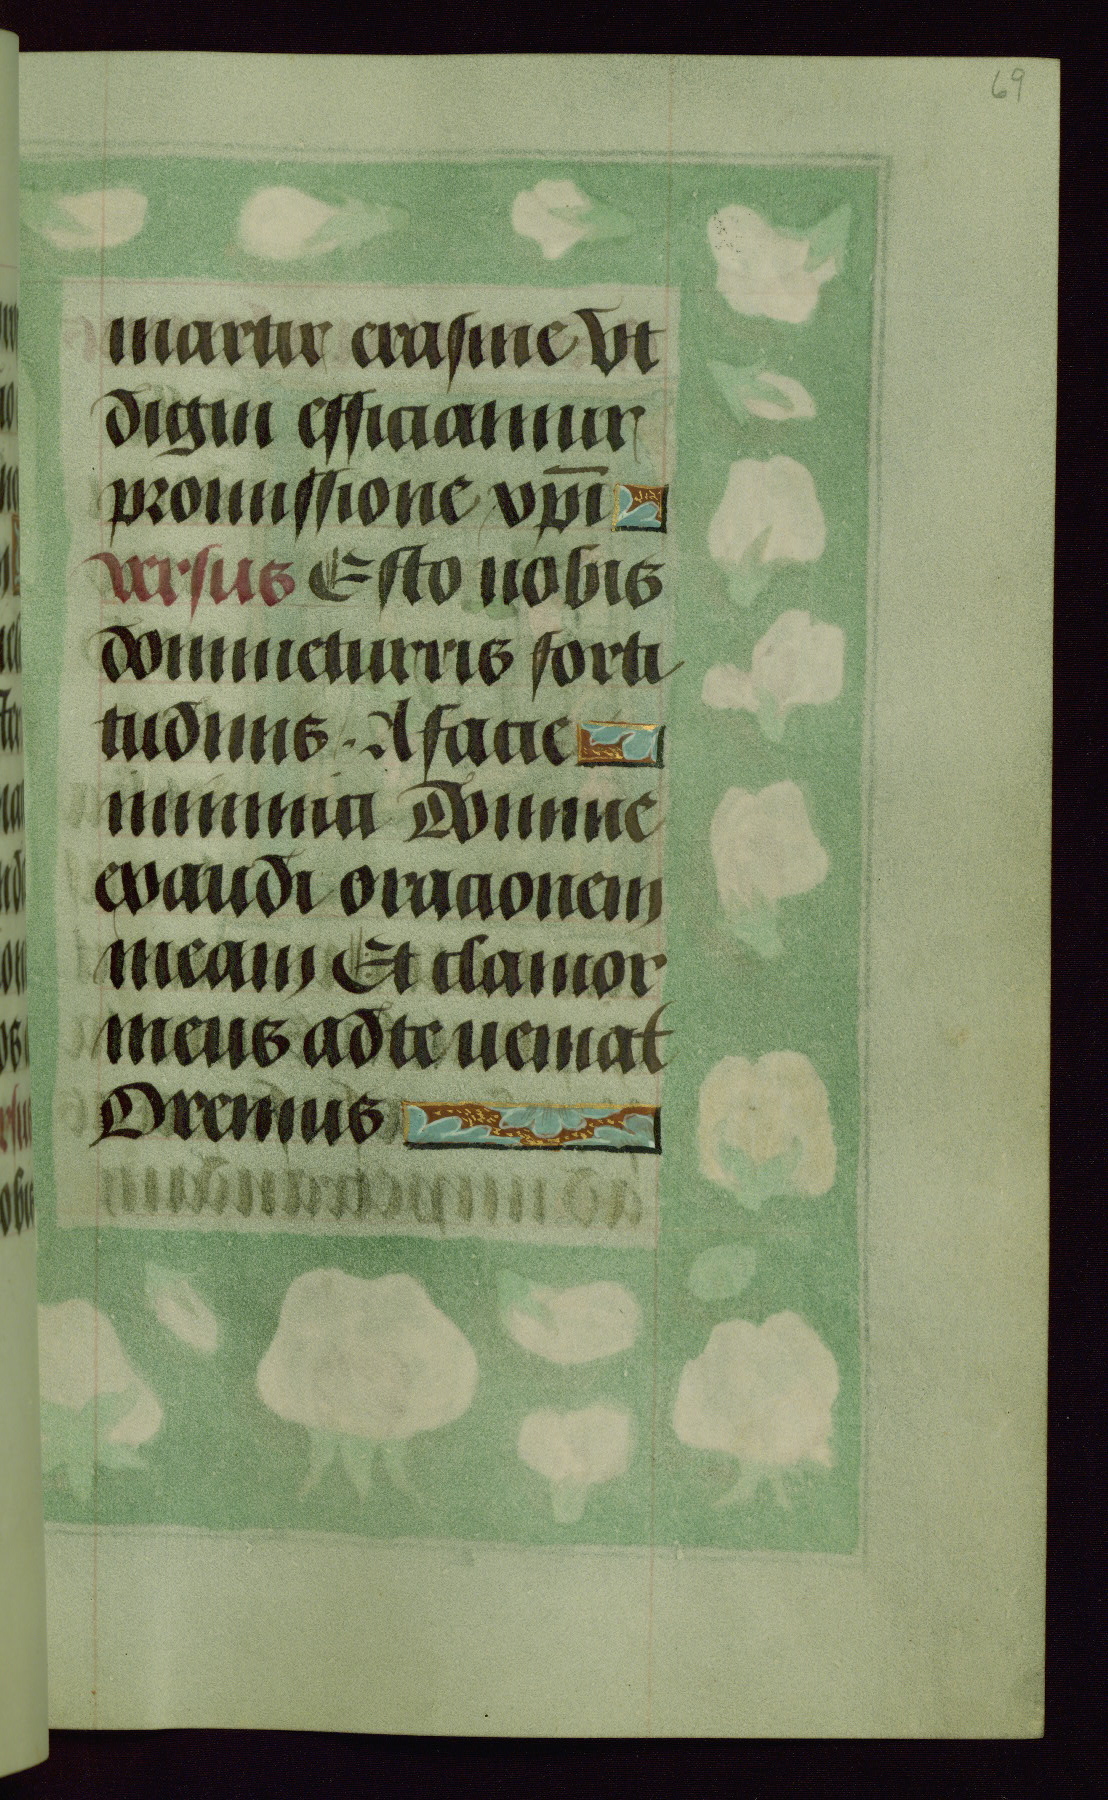 69
martir erasme Vt
digni efficiamur
promissione xp̄i
versus Esto nobis
domine turris forti
tudinis. A facie
inimici Domine
exaudi orationem
meam Et clamor
meus ad te ueniat
Oremus